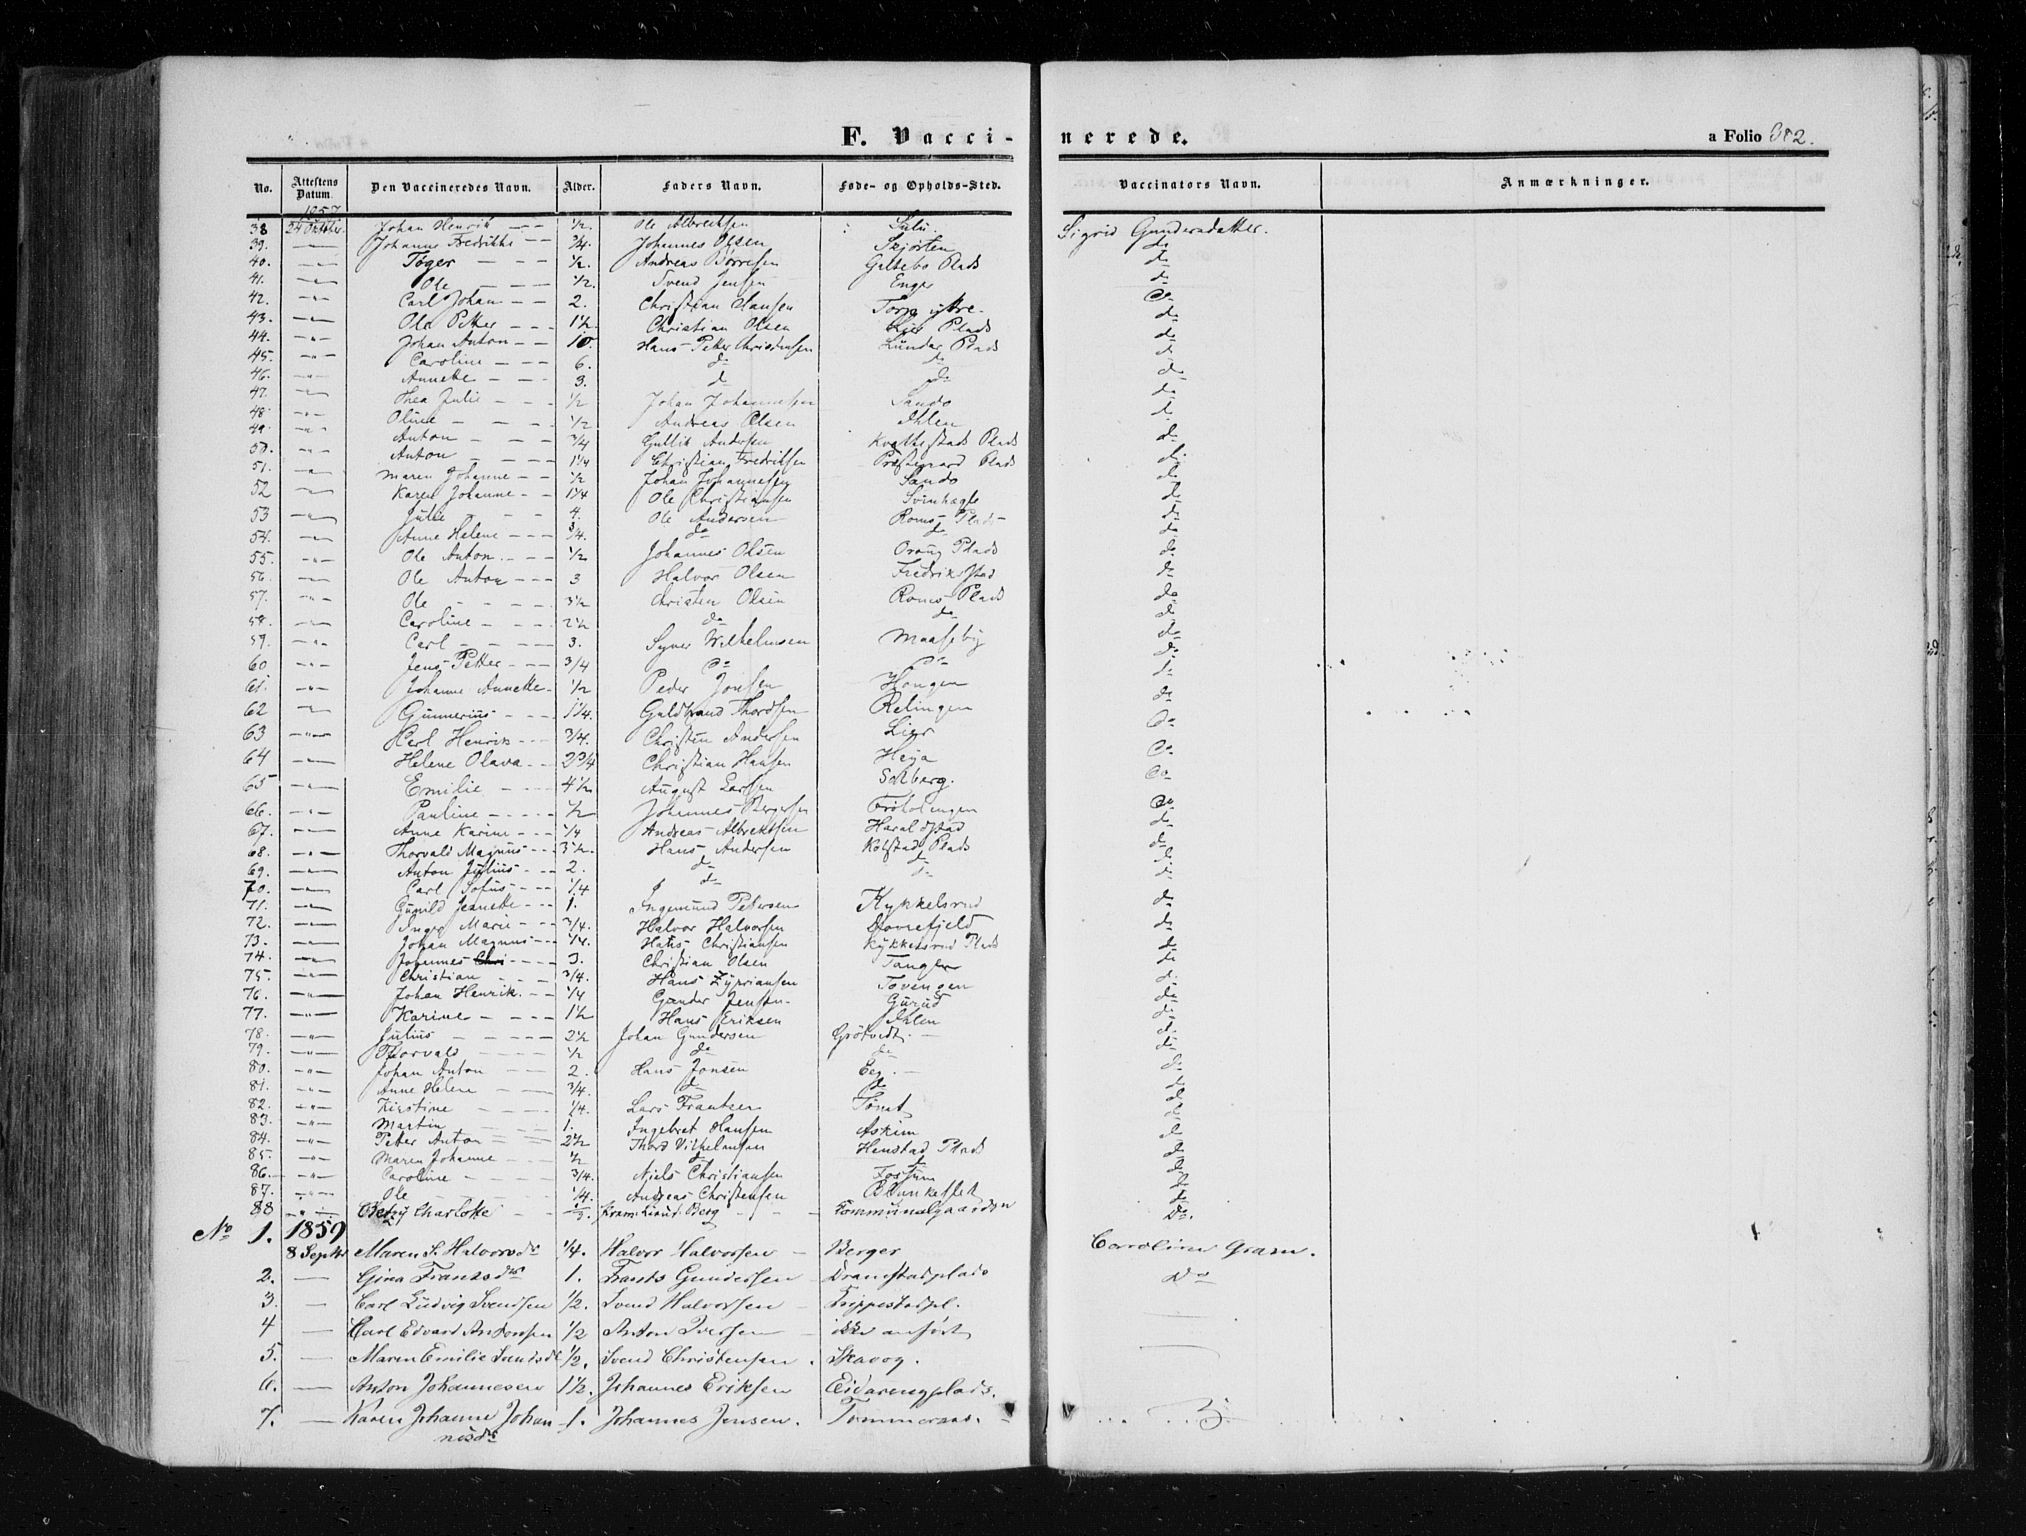 F. Vacci-nerede. a Folio 382.
No. Attestens Datum. Den Vaccineredes Navn. Alder. Faders Navn. Føde- og Opholds-Sted. Vaccinators Navn. Anmærkninger.
1857
38 24 Oktober. Johan Henrik 1/2. Ole Albrektsen Sigrid Gundersdatter.
39. Johanne Fredrikke 3/4. Johannes Olsen Skjørten do
40. Tøger 1/2. Andreas Børresen Plads do
41. Ole 1/2. Svend Jensen Enger do
42. Carl Johan 2. Christian Hansen Torp ytre. do
43. Ole Petter 1 1/2. Christian Olsen Plads do
44. Johan Anton 10. Hans Petter Christensen Lundar Plads do
45. Caroline 6. do do do
46. Annette 3. do do do
47. Thea Julie 1/2 Johan Johannesen Sando do
48. Oline 1/2 Andreas Olsen Ihlen do
49. Anton 3/4 Gullik Andersen Plads do
50. Anton 1 1/4 Christian Fredriksen Præstegaard Plads do
51. Maren Johanne 1/2 Johan Johannesen Sando do
52 Karen Johanne 1 1/4 Ole Christiansen do
53 Julie 4. Ole Andersen Roms Plads do
54. Anne Helene 3/4. do do do
55. Ole Anton 1/2 Johannes Olsen Oraug Plads do
56. Ole Anton 3 Halvor Olsen Fredrikstad do
57. Ole 3 1/2 Christen Olsen Roms Plads do
58. Caroline 2 1/2 do do do
59. Carl 3. Syver Wilhelmsen Maaseby do
60 Jens Petter 3/4 do do do
61. Johanne Annette 1/2 Peder Jonsen Hongen do
62 Gunnerius 1 1/4. Guldbrand Thordsen Relingen do
63 Carl Henrik 3/4. Christen Andersen Lier do
64 Helene Olava 2 3/4 Christian Hansen Heja do
65 Emilie 4 1/2 August Larsen Solberg. do
66. Pauline 1/2 Johannes Bergersen do
67. Anne Karine 1/4 Andreas Albrektsen Haraldstad do
68. Thorvald Magnus 3 1/2. Hans Andersen Kolstad Plads do
69. Anton Julius 2. do do do
70. Carl Sofus 1/4 do do
71. Gunild Jeanette 1. Ingemund Petersen Kykkelsrud do
72. Inger Marie 3/4. Halvor Halvorsen Dovrefjeld do
73. Johan Magnus 1/4. Hans Christiansen Kykkelsrud Plads do
74. Johannes Chri 3. Christian Olsen Tanger do
75. Christian 3/4. Hans Zyprianssen Tovengen do
76. Johan Henrik. 1/4 Gunder Jensen Gurud do
77. Karine 1 1/2 Hans Eriksen Ihlen do
78. Julius 2 1/2 Johan Gundersen Grøtvedt. do
79. Thorvald 1/2 do do do
80. Johan Anton 2. Hans Jonsen Eeg. do
81. Anne Helene 3/4. do do do
82. Kirstine 1/4. Lars Frantsen Tømt do
83. Martin 1. Ingebret Hansen Askim do
84. Petter Anton 2 1/2 Thord Vilhelmsen Henstad Plads do
85. Maren Johanne 1/2 do do do
86. Caroline 3/4. Niels Christiansen Fossum do
87. Ole 1/4. Andreas Christensen do
88 Betzy Charlotte Berg Kommunalgaarden do.
No 1. 1859
8 Septbr Maren S. Halvorsdr 1/4. Halvor Halvorsen Berger Caroline Gram.
2. Gina Frantsdr 1. Frants Gundersen Dramstadplads Do
3. Carl Ludvig Svendsen 1/2. Svend Halvorsen Trippestadpl.
4 Carl Edvard Antonsen 1/2 Anton Iversen ikke anført
5. Maren Emilie Svendsdr 1/2. Svend Christensen. Skavog.
6. Anton Johannesen 1 1/2. Johannes Eriksen Eidarengplads.
7. Karen Johanne Johan 1. Johannes Jensen. Tommeraas.
nesdr